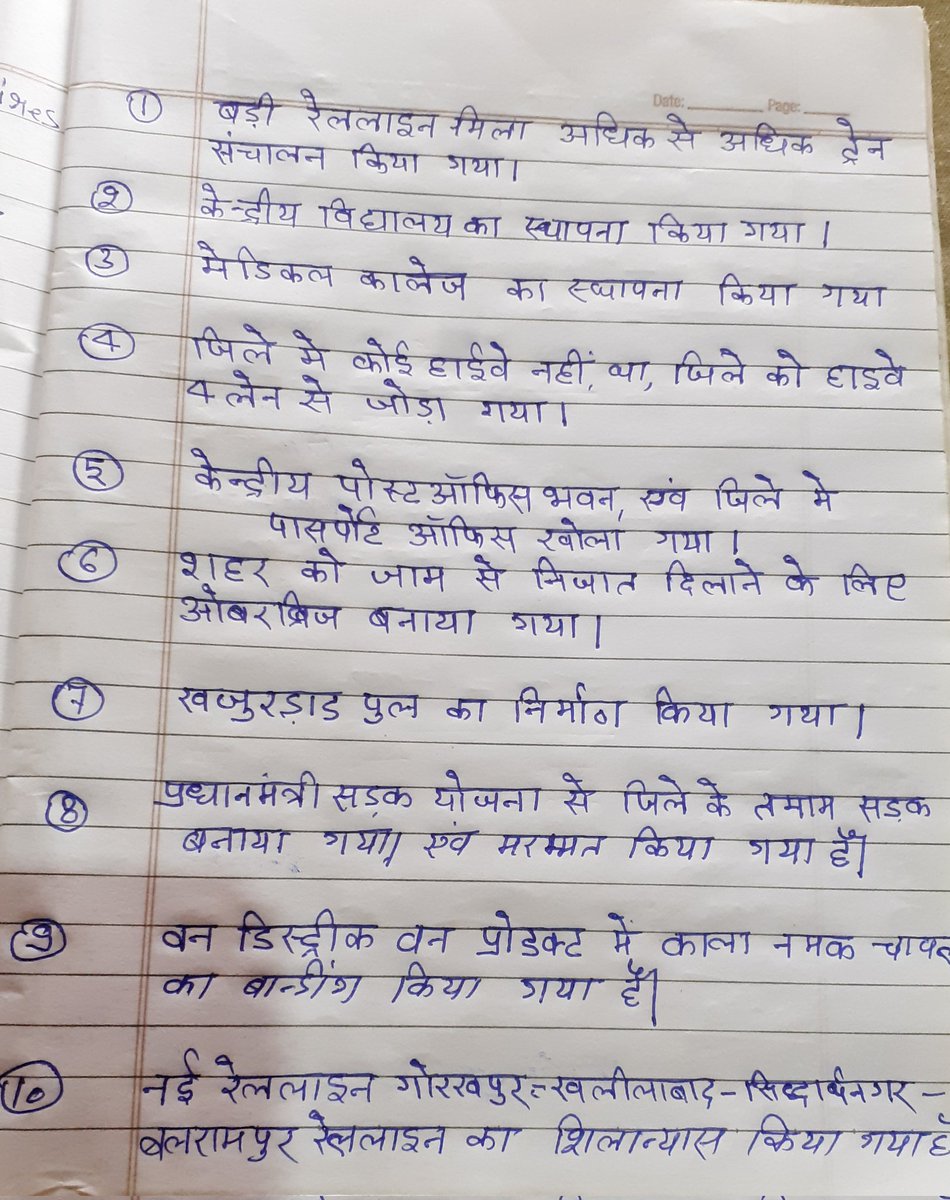 Date: Page:
① बड़ी रेललाइन मिला अधिक से अधिक ट्रेन
संचालन किया गया।
② केन्द्रीय विद्यालय का स्थापना किया गया।
③ मेडिकल कालेज का स्थापना किया गया
④ जिले मे कोई हाईवे नहीं, था, जिले को हाइवे
4 लेन से जोड़ा गया।
⑤ केन्द्रीय पोस्ट ऑफिस भवन, एवं जिले मे
पासपोर्ट ऑफिस खोला गया।
⑥ शहर को जाम से निजात दिलाने के लिए
ओबरब्रिज बनाया गया।
⑦ खजुरडाड पुल का निर्माण किया गया।
⑧ प्रधानमंत्री सड़क योजना से जिले के तमाम सड़क
बनाया गया॥ एवं मरम्मत किया गया हैं।
⑨ वन डिस्ट्रीक वन प्रोडक्ट में काला नमक
का किया गया हैं।
⑩ नई रेललाइन गोरखपुर-खलीलाबाद-सिद्धार्थनगर-
बलरामपुर रेललाइन का शिलान्यास किया गया